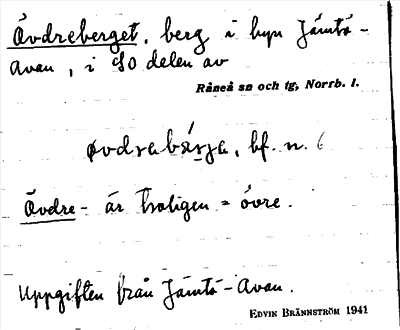 Övdreberget, berg i byn Jämtö-
Avan, i SO delen av
Råneå sn och tg, Norrb. l.
øvdrabärja, bf. n.
Övdre- är troligen = övre.
Uppgiften från Jämtö-Avan.
EDVIN BRÄNNSTRÖM 1941